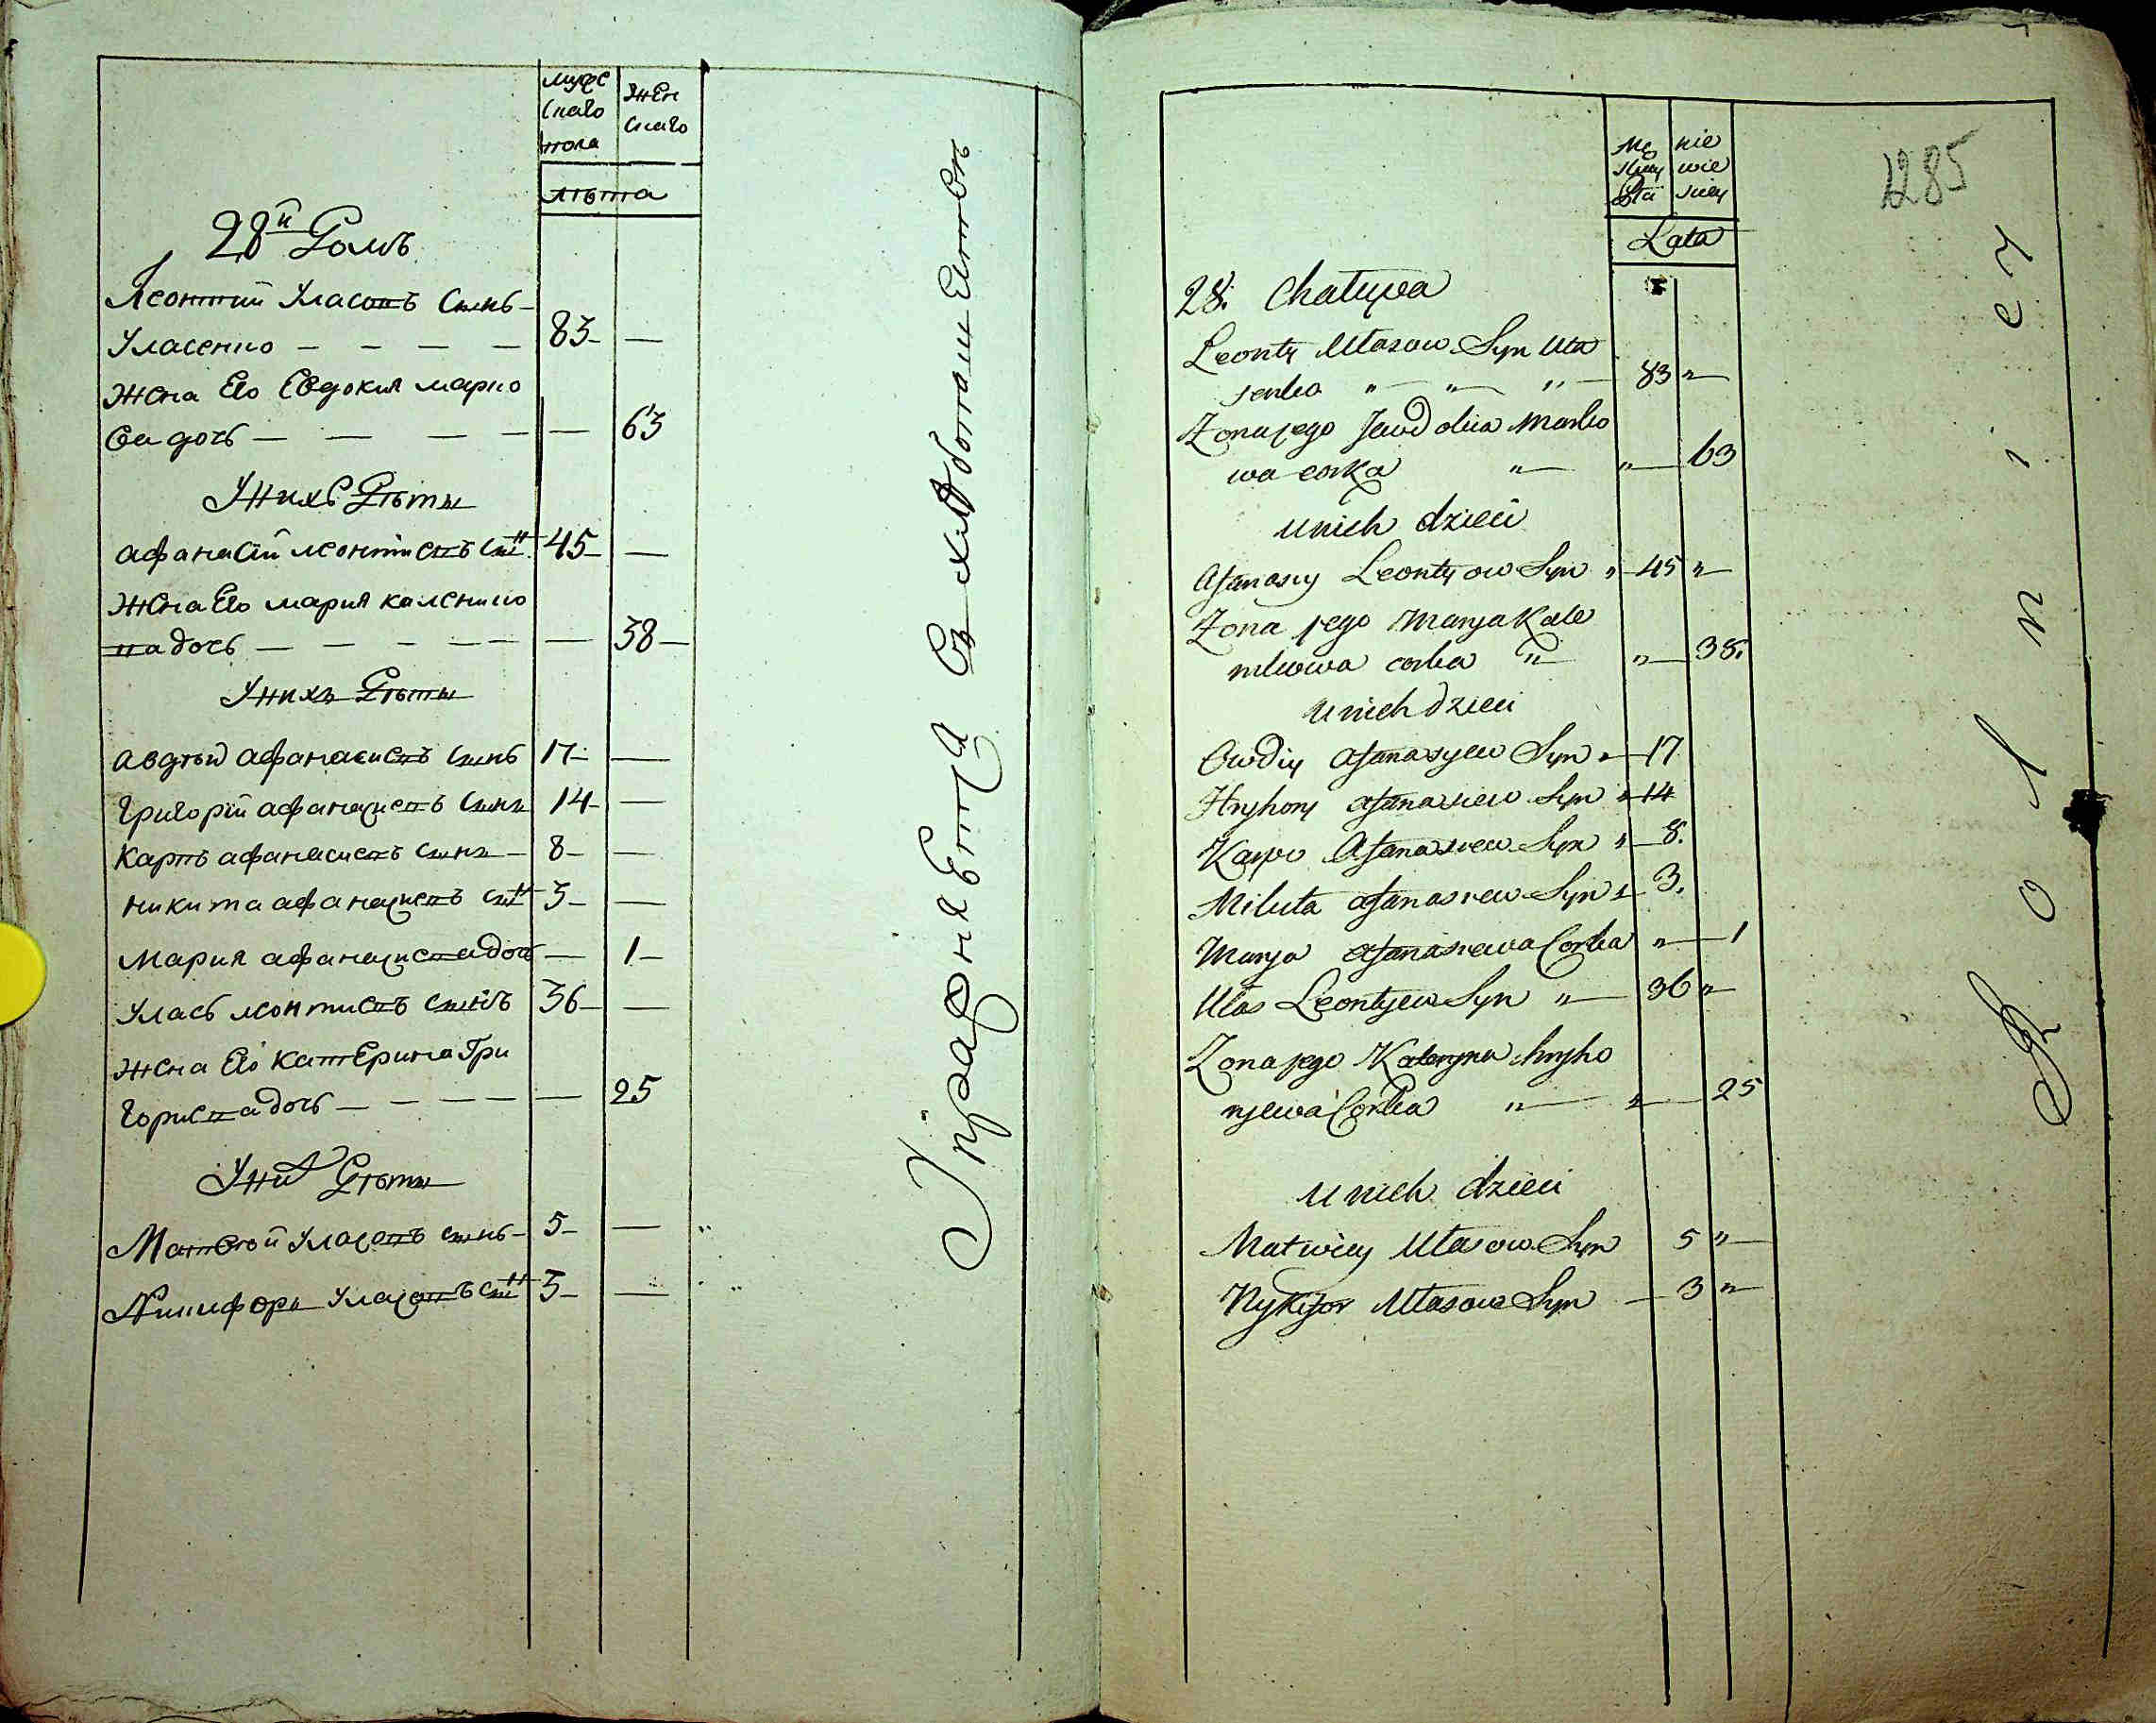 мужс
каго
пола
жен
скаго
лѣта
28й Домъ
Леонтий Уласовъ сынъ
Уласенко
83
жена Его Евдокия марко
ва дочь
63
У нихъ Дѣты
афанасий леонтиевъ сынъ 45
жена Его мария каленико
ва дочь
38
У нихъ Дѣты
авдѣй афанасиевъ сынъ 17
григорий афанасиевъ сынъ 14
карпъ афанасиевъ сынъ 8
никита афанасиевъ сынъ 3
мария афанасиева дочь 1
Уласъ леонтиевъ сынъ 36
жена Его катерина Гри
гориева дочь
25
У них Дѣты
Матвѣй Уласовъ сынъ 5
Никифоръ Уласовъ сынъ 3
Упражняется в хлѣбопашествѣ
1285
Mę
skiey
płci
nie
wie
sciey
Lata
28. Chatupa
Leonty Ułasow Syn Uła
senko 83
Zona jego Jawdokia Marko
wa corka 63
u nich dzieci
Afanasiy Leontyow Syn 45
Zona jego Marya Kale
nikowa corka 38.
u nich dzieci
Owdiy Afanasyew Syn 17
Hryhory Afanasiew Syn 14
Karpo Afanasiew Syn 8.
Mikita Afanasiew Syn 3.
Marya Afanasiewa Corka 1
Ułas Leontyew Syn 36
Zona jego Kateryna hryho
ryewa Corka 25
u nich dzieci
Matwiey Ułasow Syn 5
Nykifor Ułasow Syn 3
Rolnicy